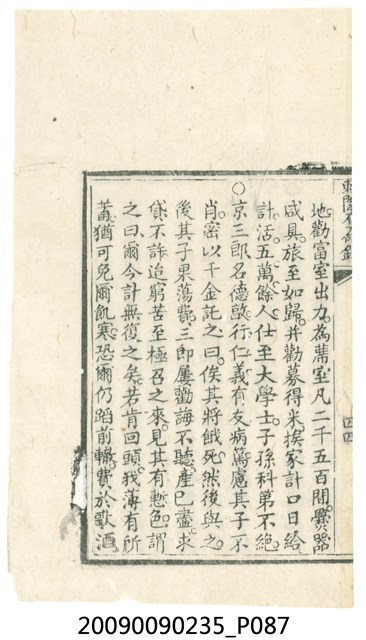 地勸富室出力為蓆室凡二千五百間爨器
咸具旅至如歸并勸募得米挨家計口日給
計活五萬餘人仕至大學士子孫科第不絕
○京三郎名德敵行仁義有友病篤慮其子不
肖密以千金託之曰俟其將餓死然後與之
後其子果蕩費三郎屢勸誨不聽產已盡求
貸不許迨窮苦至極召之來見其有慙色謂
之曰爾今計無復之矣若肯回頭我薄有所
蓄猶可免爾飢寒恐爾仍蹈前轍費於歌酒
四四
20090090235_P087